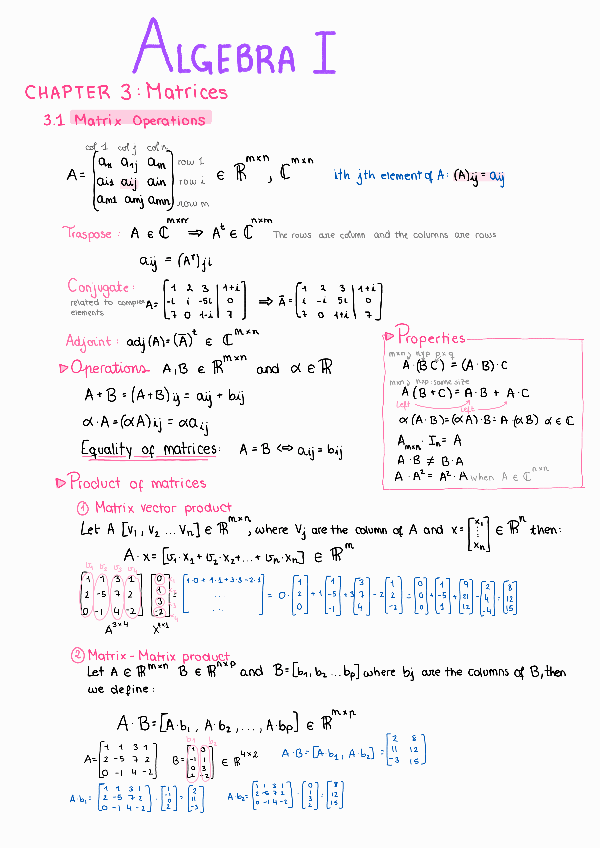 ALGEBRA I
CHAPTER 3: Matrices
3.1 Matrix Operations
col 1 col j col n
A = [a11 a1j a1n; ai1 aij ain; am1 amj amn] row 1 row i row m ∈ ℝ^m×n, ℂ^m×n ith jth element of A: (A)ij = aij
Traspose: A ∈ ℂ^m×n ⇒ A^t ∈ ℂ^n×m The rows are column and the columns are rows
aij = (A^t)ji
Conjugate: related to complex elements A = [1 2 3 | 1+i; -i i -5i | 0; 7 0 1-i | 7] ⇒ Ā = [1 2 3 | 1+i; i -i 5i | 0; 7 0 1+i | 7]
Adjoint: adj(A) = (Ā)^t ∈ ℂ^m×n
▷Operations A,B ∈ ℝ^m×n and α ∈ ℝ
A + B = (A+B)ij = aij + bij
α·A = (αA)ij = αaij
Equality of matrices: A = B ⇔ aij = bij
▷Properties
m×n, n×p p×q
A (BC) = (A·B)·C
m×n, n×p: same size
A (B+C) = A·B + A·C
left left
α(A·B) = (αA)·B = A·(αB) α ∈ ℂ
Am×n · In = A
A·B ≠ B·A
A·A² = A²·A when A ∈ ℂ^n×n
▷Product of matrices
① Matrix vector product
Let A [V1, V2 ... Vn] ∈ ℝ^m×n, where Vj are the column of A and x = [x1 ⋮ xn] ∈ ℝ^n then:
A·x = [v1·x1 + v2·x2 + ... + vn·xn] ∈ ℝ^m
v1 v2 v3 v4
[1 1 3 1; 2 -5 7 2; 0 -1 4 -2] [0; 1; 3; -2] = [1·0+1·1+3·3-2·1; ..; ..] = 0·[1; 2; 0] + 1·[1; -5; -1] + 3[3; 7; 4] - 2[1; 2; -2] = [0; 0; 0] + [1; -5; 1] + [9; 21; 12] - [2; 4; -4] = [8; 12; 15]
A^3×4 X^4×1
② Matrix-Matrix product
Let A ∈ ℝ^m×n B ∈ ℝ^n×p and B = [b1, b2 ... bp] where bj are the columns of B, then
we define:
A·B = [A·b1, A·b2, ..., A·bp] ∈ ℝ^m×p
b1 b2
A = [1 1 3 1; 2 -5 7 2; 0 -1 4 -2] B = [1 0; -1 1; 0 3; 2 -2] ∈ ℝ^4×2 A·B = [A·b1, A·b2] = [2 8; 11 12; -3 15]
A·b1 = [1 1 3 1; 2 -5 7 2; 0 -1 4 -2] · [1; -1; 0; 2] = [2; 11; -3] A·b2 = [1 1 3 1; 2 -5 7 2; 0 -1 4 -2] · [0; 1; 3; 2] = [8; 12; 15]